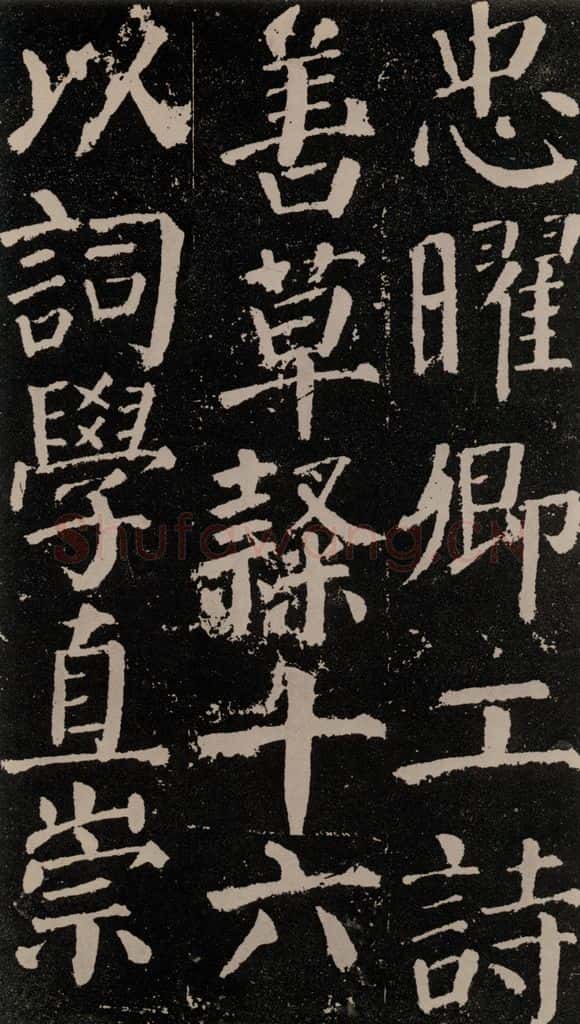 忠曜卿工詩
善草隸十六
以詞學直崇
Shufawang.CN